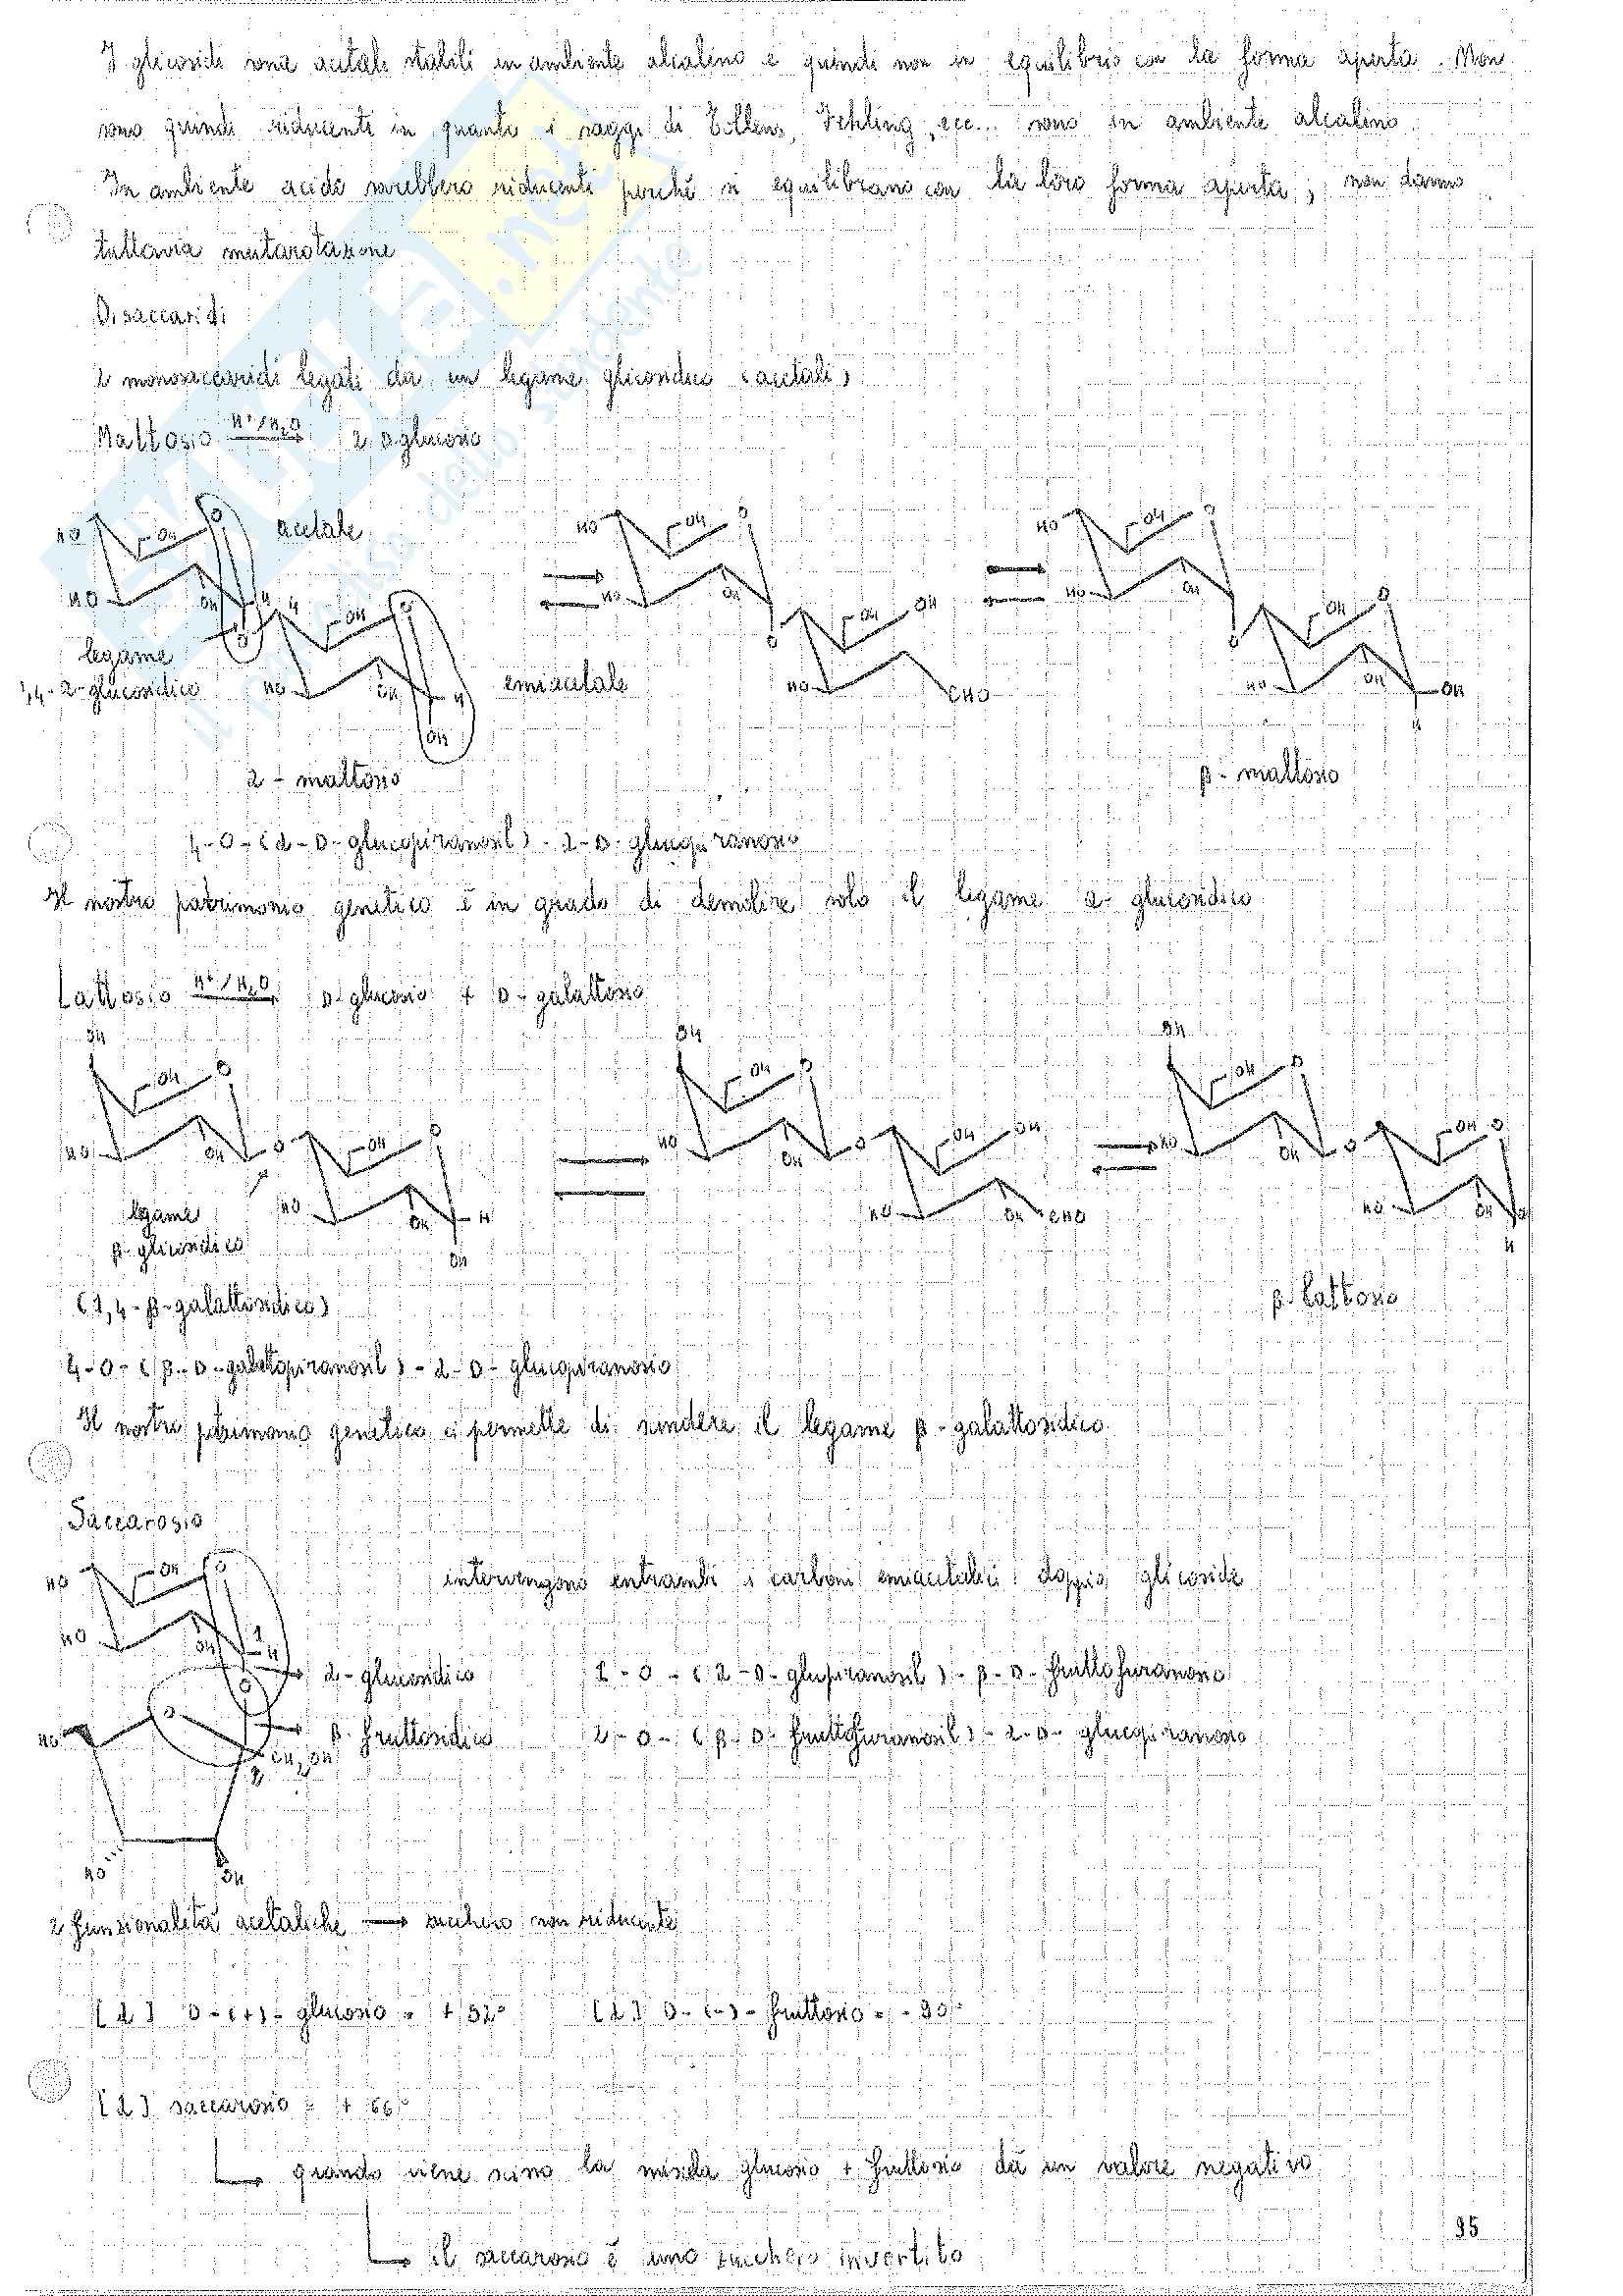 I glicosidi sono acetali stabili in ambiente alcalino e quindi non in equilibrio con la forma aperta. Non
sono quindi riducenti in quanto i saggi di Tollens, Fehling, ecc... sono in ambiente alcalino.
In ambiente acido sarebbero riducenti perché si equilibrano con la loro forma aperta; non danno
tuttavia mutarotazione
Disaccaridi
2 monosaccaridi legati da un legame glicosidico (acetali)
Maltosio H+/H2O 2 D glucosio
HO OH O acetale HO OH O HO OH O
HO OH H 4 OH O HO OH HO OH
legame O O OH OH O OH O
1,4-α-glucosidico HO OH H emiacetale HO CHO HO OH OH
OH H
α-maltosio β-maltosio
4-O-(α-D-glucopiranosil)-α-D-glucopiranosio
Il nostro patrimonio genetico è in grado di demolire solo il legame α-glucosidico
Lattosio H+/H2O D-glucosio + D-galattosio
OH OH OH
OH O OH O OH O
HO OH O OH O HO OH O OH OH HO OH O OH O
legame HO OH H HO OH CHO HO OH O
β-glicosidico OH H
(1,4-β-galattosidico) β-lattosio
4-O-(β-D-galattopiranosil)-α-D-glucopiranosio
Il nostro patrimonio genetico ci permette di scindere il legame β-galattosidico
Saccarosio
HO OH O intervengono entrambi i carboni emiacetalici: doppio glicoside
HO OH 1 H
O α-glucosidico 1-O-(α-D-glupiranosil)-β-D-fruttofuranosio
HO O β-fruttosidico 2-O-(β-D-fruttofuranosil)-α-D-glucopiranosio
CH2OH
2
HO OH
2 funzionalità acetaliche → zucchero non riducente
[α] D-(+)-glucosio = +52° [α] D-(-)-fruttosio = -90°
[α] saccarosio = +66°
quando viene scisso la miscela glucosio + fruttosio dà un valore negativo
il saccarosio è uno zucchero invertito
95